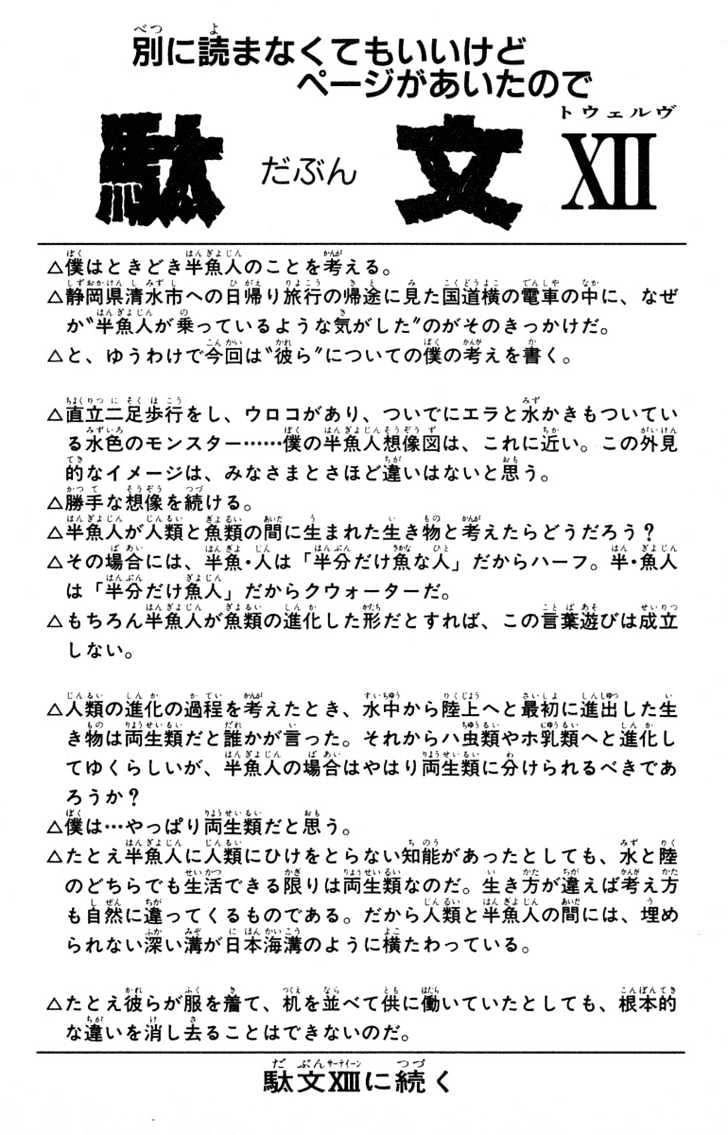 別に読まなくてもいいけど
ページがあいたので
駄文 だぶん XII トウェルヴ
△僕はときどき半魚人のことを考える。
△静岡県清水市への日帰り旅行の帰途に見た国道横の電車の中に、なぜ
か〝半魚人が乗っているような気がした〟のがそのきっかけだ。
△と、ゆうわけで今回は〝彼ら〟についての僕の考えを書く。
△直立二足歩行をし、ウロコがあり、ついでにエラと水かきもついてい
る水色のモンスター……僕の半魚人想像図は、これに近い。この外見
的なイメージは、みなさまとさほど違いはないと思う。
△勝手な想像を続ける。
△半魚人が人類と魚類の間に生まれた生き物と考えたらどうだろう?
△その場合には、半魚・人は「半分だけ魚な人」だからハーフ。半・魚人
は「半分だけ魚人」だからクウォーターだ。
△もちろん半魚人が魚類の進化した形だとすれば、この言葉遊びは成立
しない。
△人類の進化の過程を考えたとき、水中から陸上へと最初に進出した生
き物は両生類だと誰かが言った。それからハ虫類やホ乳類へと進化し
てゆくらしいが、半魚人の場合はやはり両生類に分けられるべきであ
ろうか?
△僕は…やっぱり両生類だと思う。
△たとえ半魚人に人類にひけをとらない知能があったとしても、水と陸
のどちらでも生活できる限りは両生類なのだ。生き方が違えば考え方
も自然に違ってくるものである。だから人類と半魚人の間には、埋め
られない深い溝が日本海溝のように横たわっている。
△たとえ彼らが服を着て、机を並べて供に働いていたとしても、根本的
な違いを消し去ることはできないのだ。
駄文XIIIに続く